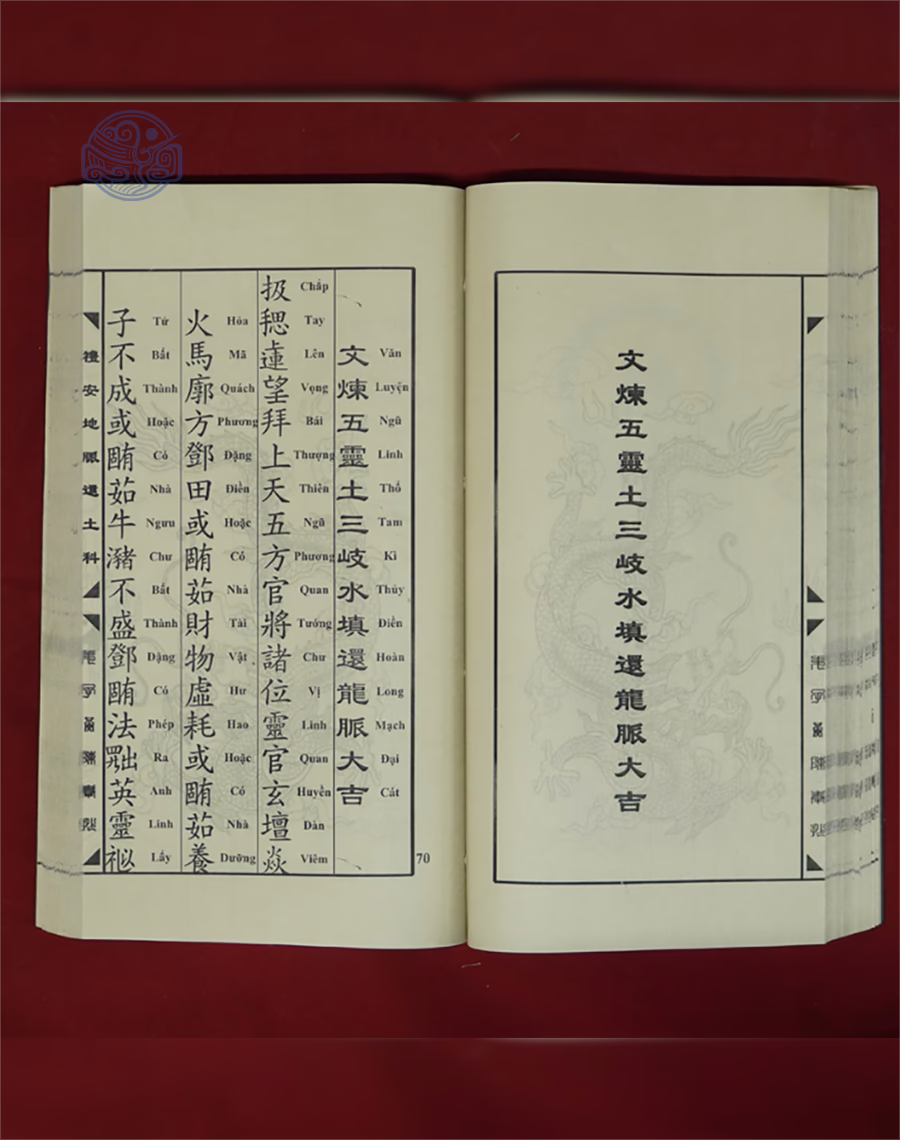 文煉五靈土三岐水填還龍脈大吉
文煉五靈土三岐水填還龍脈大吉
Văn Luyện Ngũ Linh Thổ Tam Kì Thủy Điền Hoàn Long Mạch Đại Cát
扱望拜上天五方官將諸位靈官玄壇焱
Chắp Tay Lên Vọng Bái Thượng Thiên Ngũ Phương Quan Tướng Chư Vị Linh Quan Huyền Đàn Viêm
火馬廓方鄧田或𣎏茹財物虛耗或𣎏茹養
Hỏa Mã Quách Phương Đặng Điền Hoặc Có Nhà Tài Vật Hư Hao Hoặc Có Nhà Dưỡng
子不成或𣎏茹牛瀦不盛鄧𣎏法英靈𥙩
Tử Bất Thành Hoặc Có Nhà Ngưu Chư Bất Thành Đặng Có Phép Ra Anh Linh Lấy
禮安地脈還土科
70